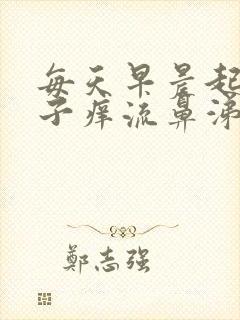 每天早晨起
子痒流鼻涕
鄭志强